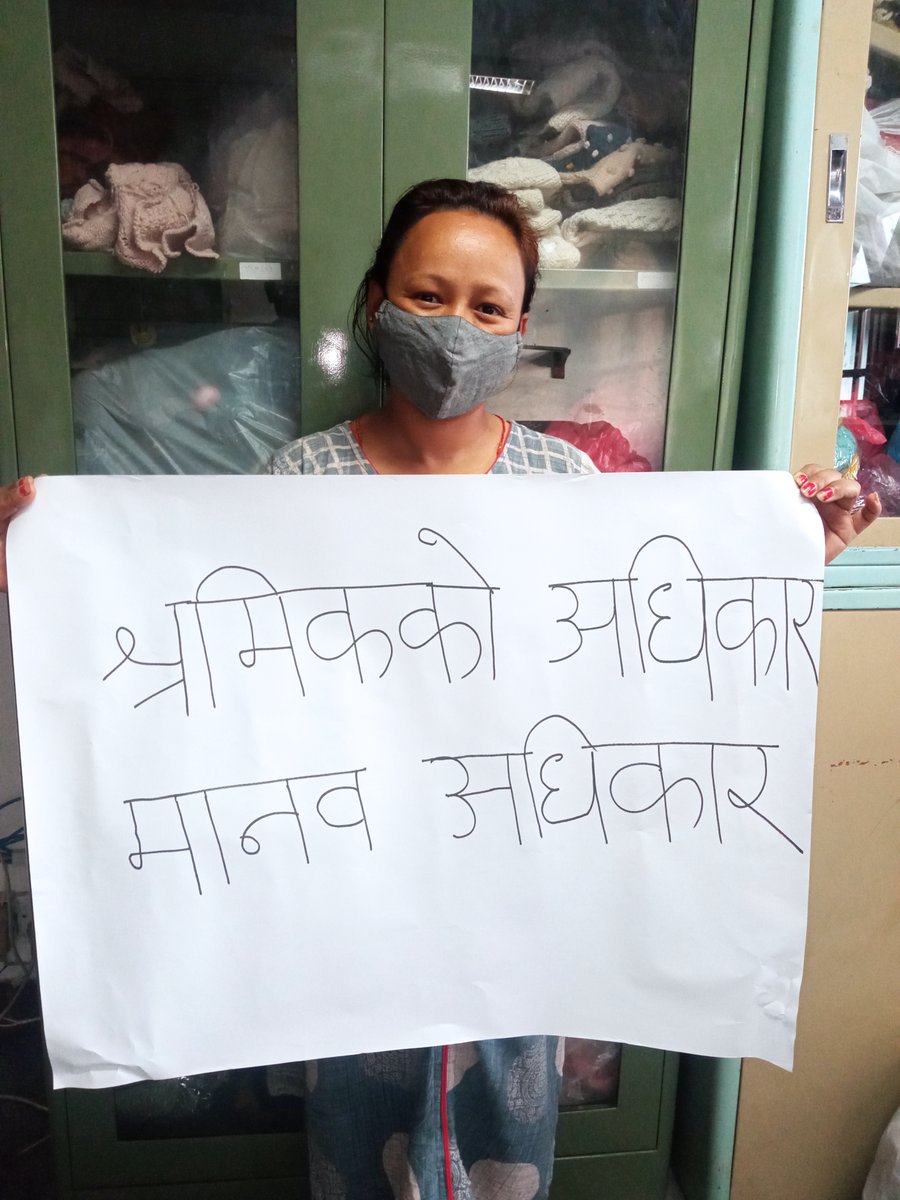 श्रमिकको अधिकार
मानव अधिकार